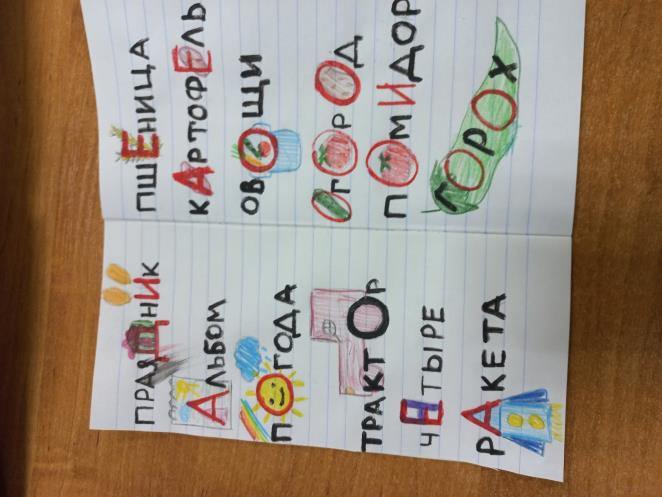 ПРАЗДНИК
АЛЬБОМ
ПОГОДА
ТРАКТОР
ЧЕТЫРЕ
РАКЕТА
ПШЕНИЦА
КАРТОФЕЛЬ
ОВОЩИ
ОГОРОД
ПОМИДОР
ГОРОХ